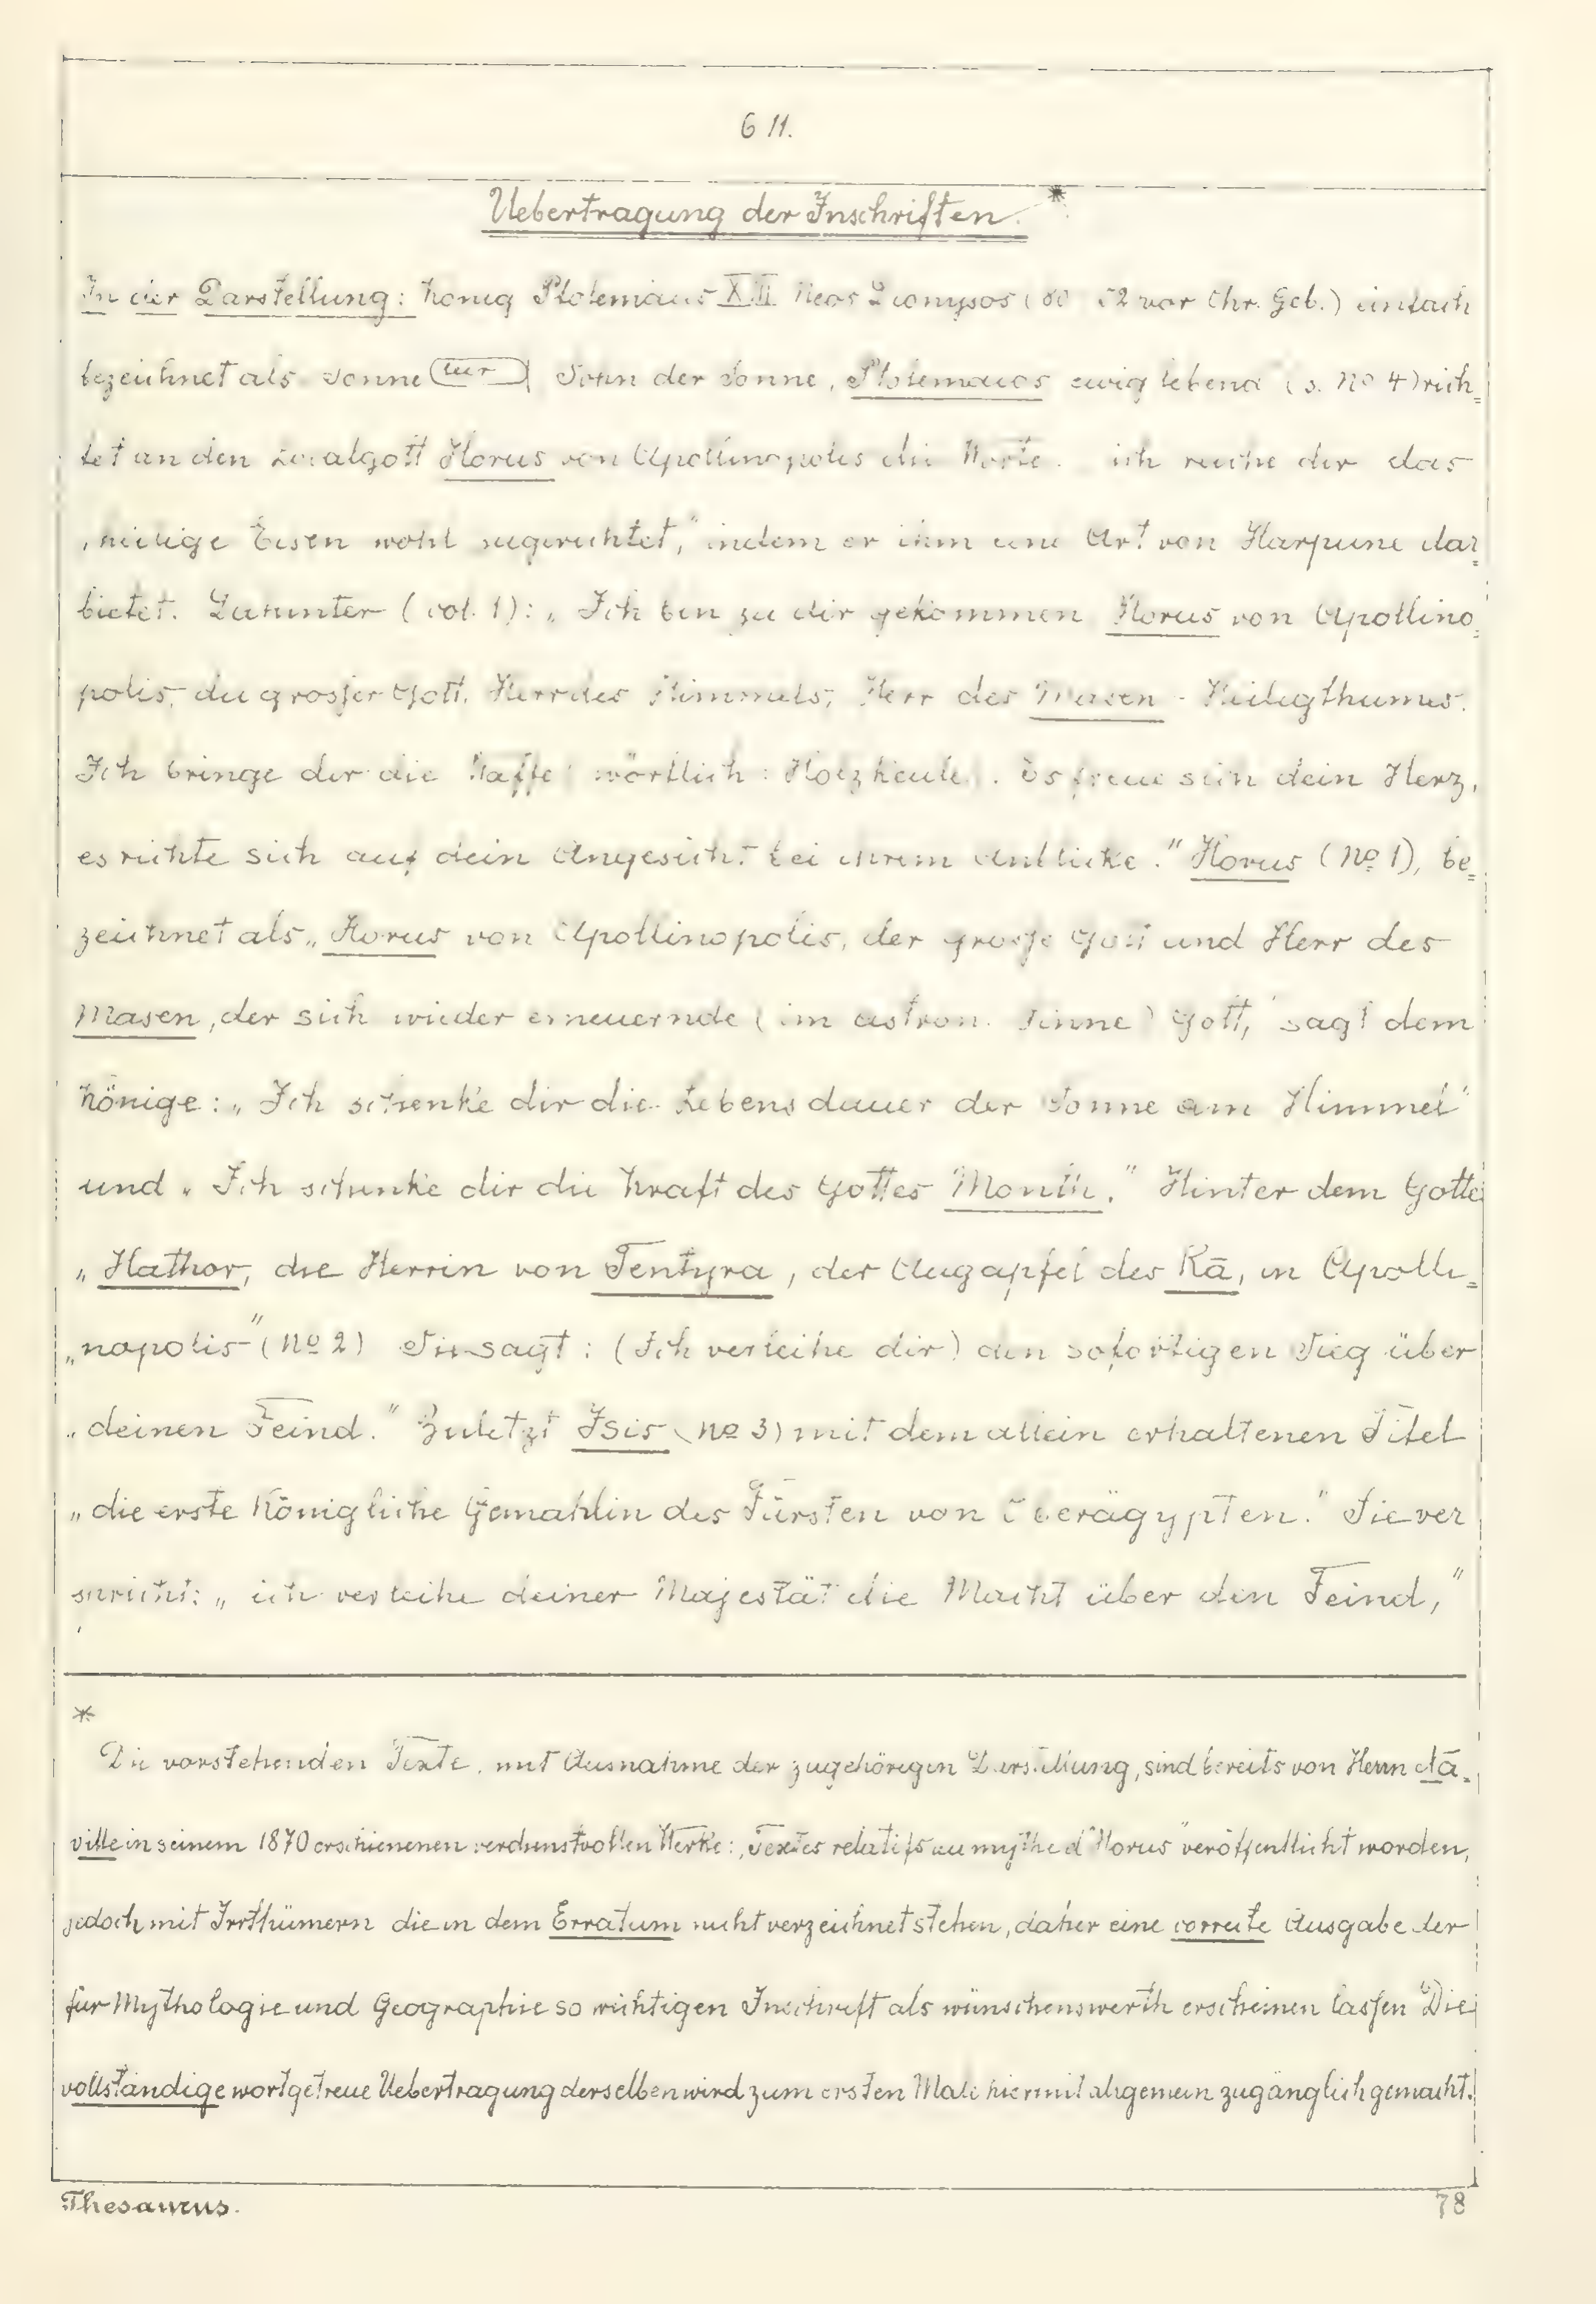 611.
Uebertragung der Inschriften. *
In der Darstellung: König Ptolemäus XIII Neos Dionysos (80 52 vor Chr. Geb.) einfach
bezeichnet als Sonne Sohn der Sonne, Ptolemaios ewig lebend (s. No 4) rich=
tet an den Localgott Horus von Apollinopolis die Worte. ich reiche dir das
„heilige Eisen wohl zugerichtet,“ indem er ihm eine Art von Harpune dar=
bietet. Darunter (col. 1): „Ich bin zu dir gekommen Horus von Apollino=
polis, du grosser Gott, Herr des Himmels, Herr des Masen-Heiligthumes.
Ich bringe dir die Waffe (wörtlich: Holzkeule). Es freue sein dein Herz,
es richte sich auf dein Angesicht bei ihrem Anblicke.“ Horus (No 1), be=
zeichnet als „Horus von Apollinopolis, der grosse Gott und Herr des
Masen, der sich wieder erneuernde (im astron. Sinne) Gott,“ sagt dem
Könige: „Ich schenke dir die Lebensdauer der Sonne am Himmel“
und „Ich schenke dir die Kraft des Gottes Month.“ Hinter dem Gotte
„Hathor, die Herrin von Tentyra, der Augapfel des Rā, in Apolli=
„nopolis“ (No 2) Sie sagt: (Ich verleihe dir) den sofortigen Sieg über
„deinen Feind.“ Zuletzt Isis (No 3) mit dem allein erhaltenen Titel
„die erste Königliche Gemahlin des Fürsten von Oberägypten.“ Sie ver
spricht: „ich verleihe deiner Majestät die Macht über den Feind,“
*
Die vorstehenden Texte, mit Ausnahme der zugehörigen Darstellung, sind bereits von Herrn Na=
ville in seinem 1870 erschienenen verdienstvollen Werke: „Textes relatifs au mythe d'Horus“ veröffentlicht worden,
jedoch mit Irrthümern die in dem Erratum nicht verzeichnet stehen, daher eine correcte Ausgabe der
für Mythologie und Geographie so wichtigen Inschrift als wünschenswerth erscheinen lassen Die
vollständige wortgetreue Uebertragung derselben wird zum ersten Male hiermit allgemein zugänglich gemacht.
Thesaurus.
78